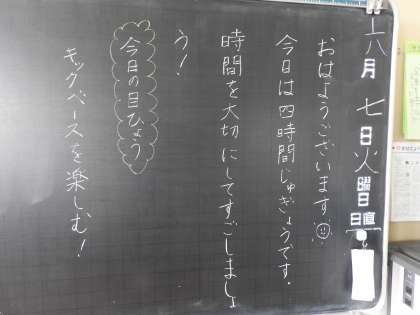 六月七日火曜日
日直
おはようございます
今日は四時間じゅぎょうです。
時間を大切にしてすごしましょ
う！
今日の目ひょう
キックベースを楽しむ！